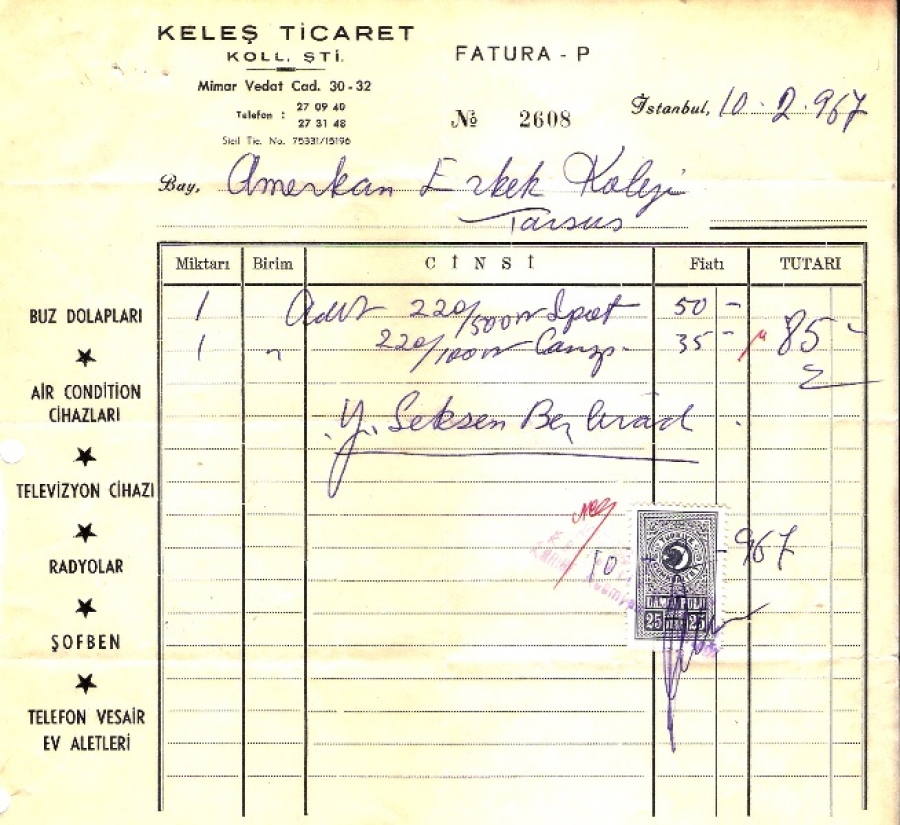 KELEŞ TİCARET
KOLL. ŞTİ.
Mimar Vedat Cad. 30-32
Telefon : 27 09 40
27 31 48
Sicil Tic. No. 75331/15196
FATURA - P
№ 2608
İstanbul, 10.2.967
Bay, Amerikan Erkek Koleji
Tarsus
Miktarı Birim CİNSİ Fiatı TUTARI
1 Adet 220/500W Spot 50 -
1 " 220/100W 35 - 85 -
Y. Seksen Beş lirad.
BUZ DOLAPLARI
AİR CONDİTİON
CİHAZLARI
TELEVİZYON CİHAZI
RADYOLAR
ŞOFBEN
TELEFON VESAİR
EV ALETLERİ
10 - 967
DAMGA PULU
25 25